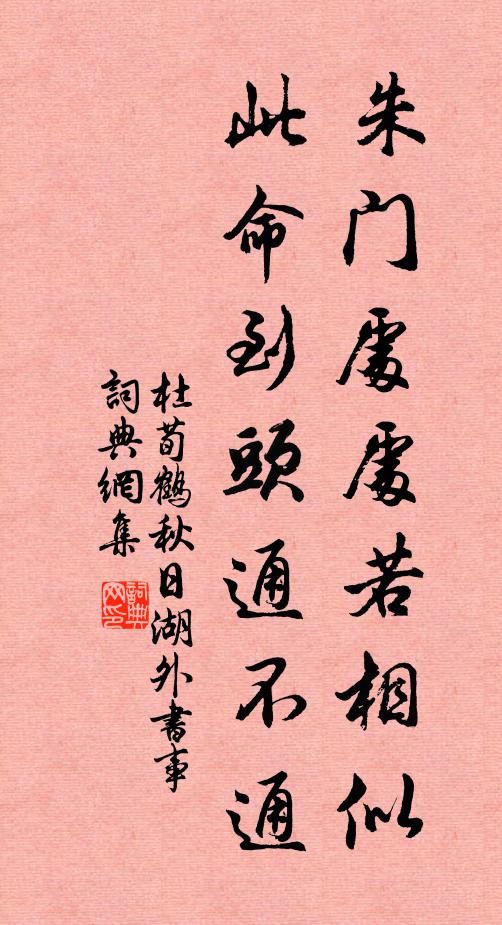 朱门處處若相似
此命到頭通不通
杜荀鶴秋日湖外書事
詞典網集
詞典网印